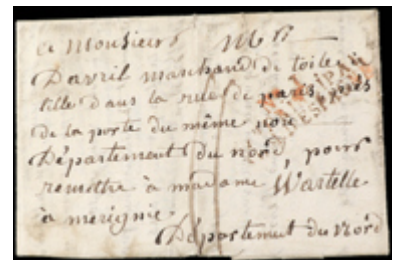 a Monsieur Mr
Davril marchand de toile
lille dans la rue de paris, près
de la porte du même nom
Département du nord, pour
remettre à madame Wartelle
à merignie
Département du Nord